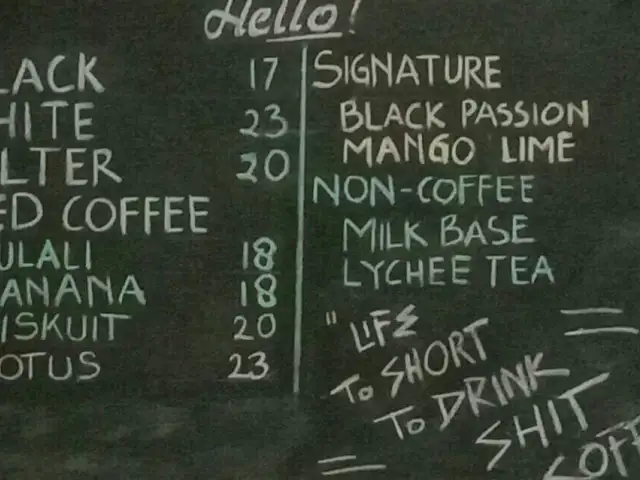 Hello!
LACK 17
HITE 23
LTER 20
ED COFFEE
ULALI 18
ANANA 18
ISKUIT 20
OTUS 23
SIGNATURE
BLACK PASSION
MANGO LIME
NON-COFFEE
MILK BASE
LYCHEE TEA
" LIFE
TO SHORT
TO DRINK
SHIT
COFF